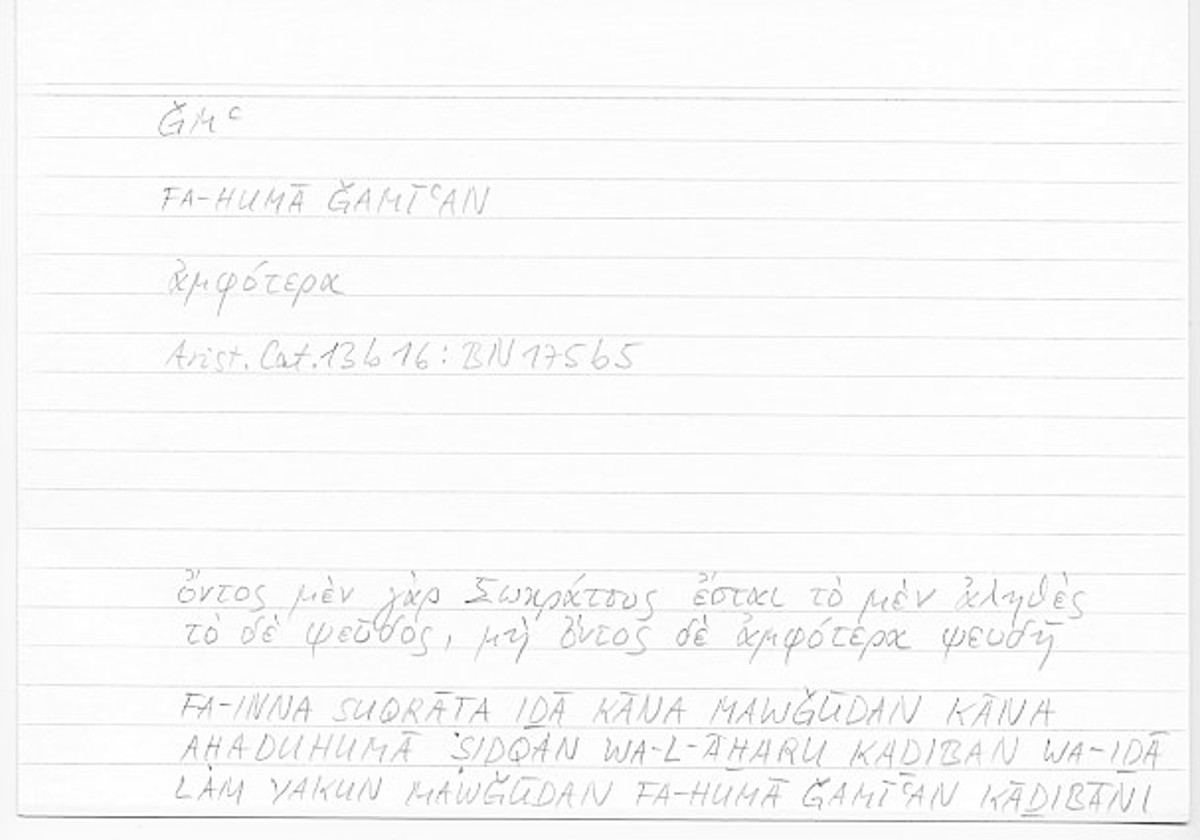 ǦMʿ
FA-HUMĀ ǦAMĪʿAN
ἀμφότερα
Arist. Cat. 13b16: BN 175b5
ὄντος μὲν γὰρ Σωκράτους ἔσται τὸ μὲν ἀληθὲς
τὸ δὲ ψεῦδος, μὴ ὄντος δὲ ἀμφότερα ψευδῆ
FA-INNA SUQRĀṬA IḎĀ KĀNA MAWǦŪDAN KĀNA
AḤADUHUMĀ ṢIDQAN WA-L-ĀḪARU KAḎIBAN WA-IḎĀ
LAM YAKUN MAWǦŪDAN FA-HUMĀ ǦAMĪʿAN KĀḎIBĀNI